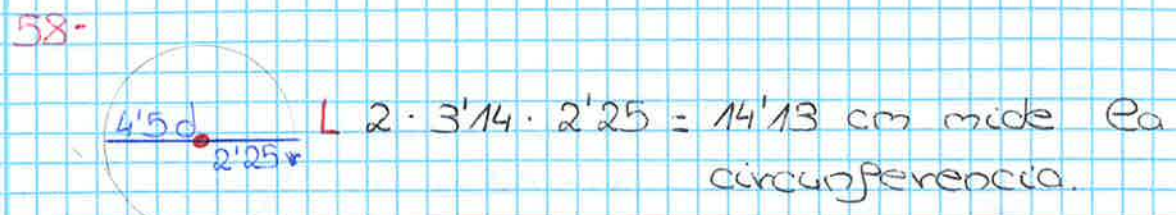 58-
4'5 d
2'25 r
L 2 · 3'14 · 2'25 = 14'13 cm mide la
circunferencia.